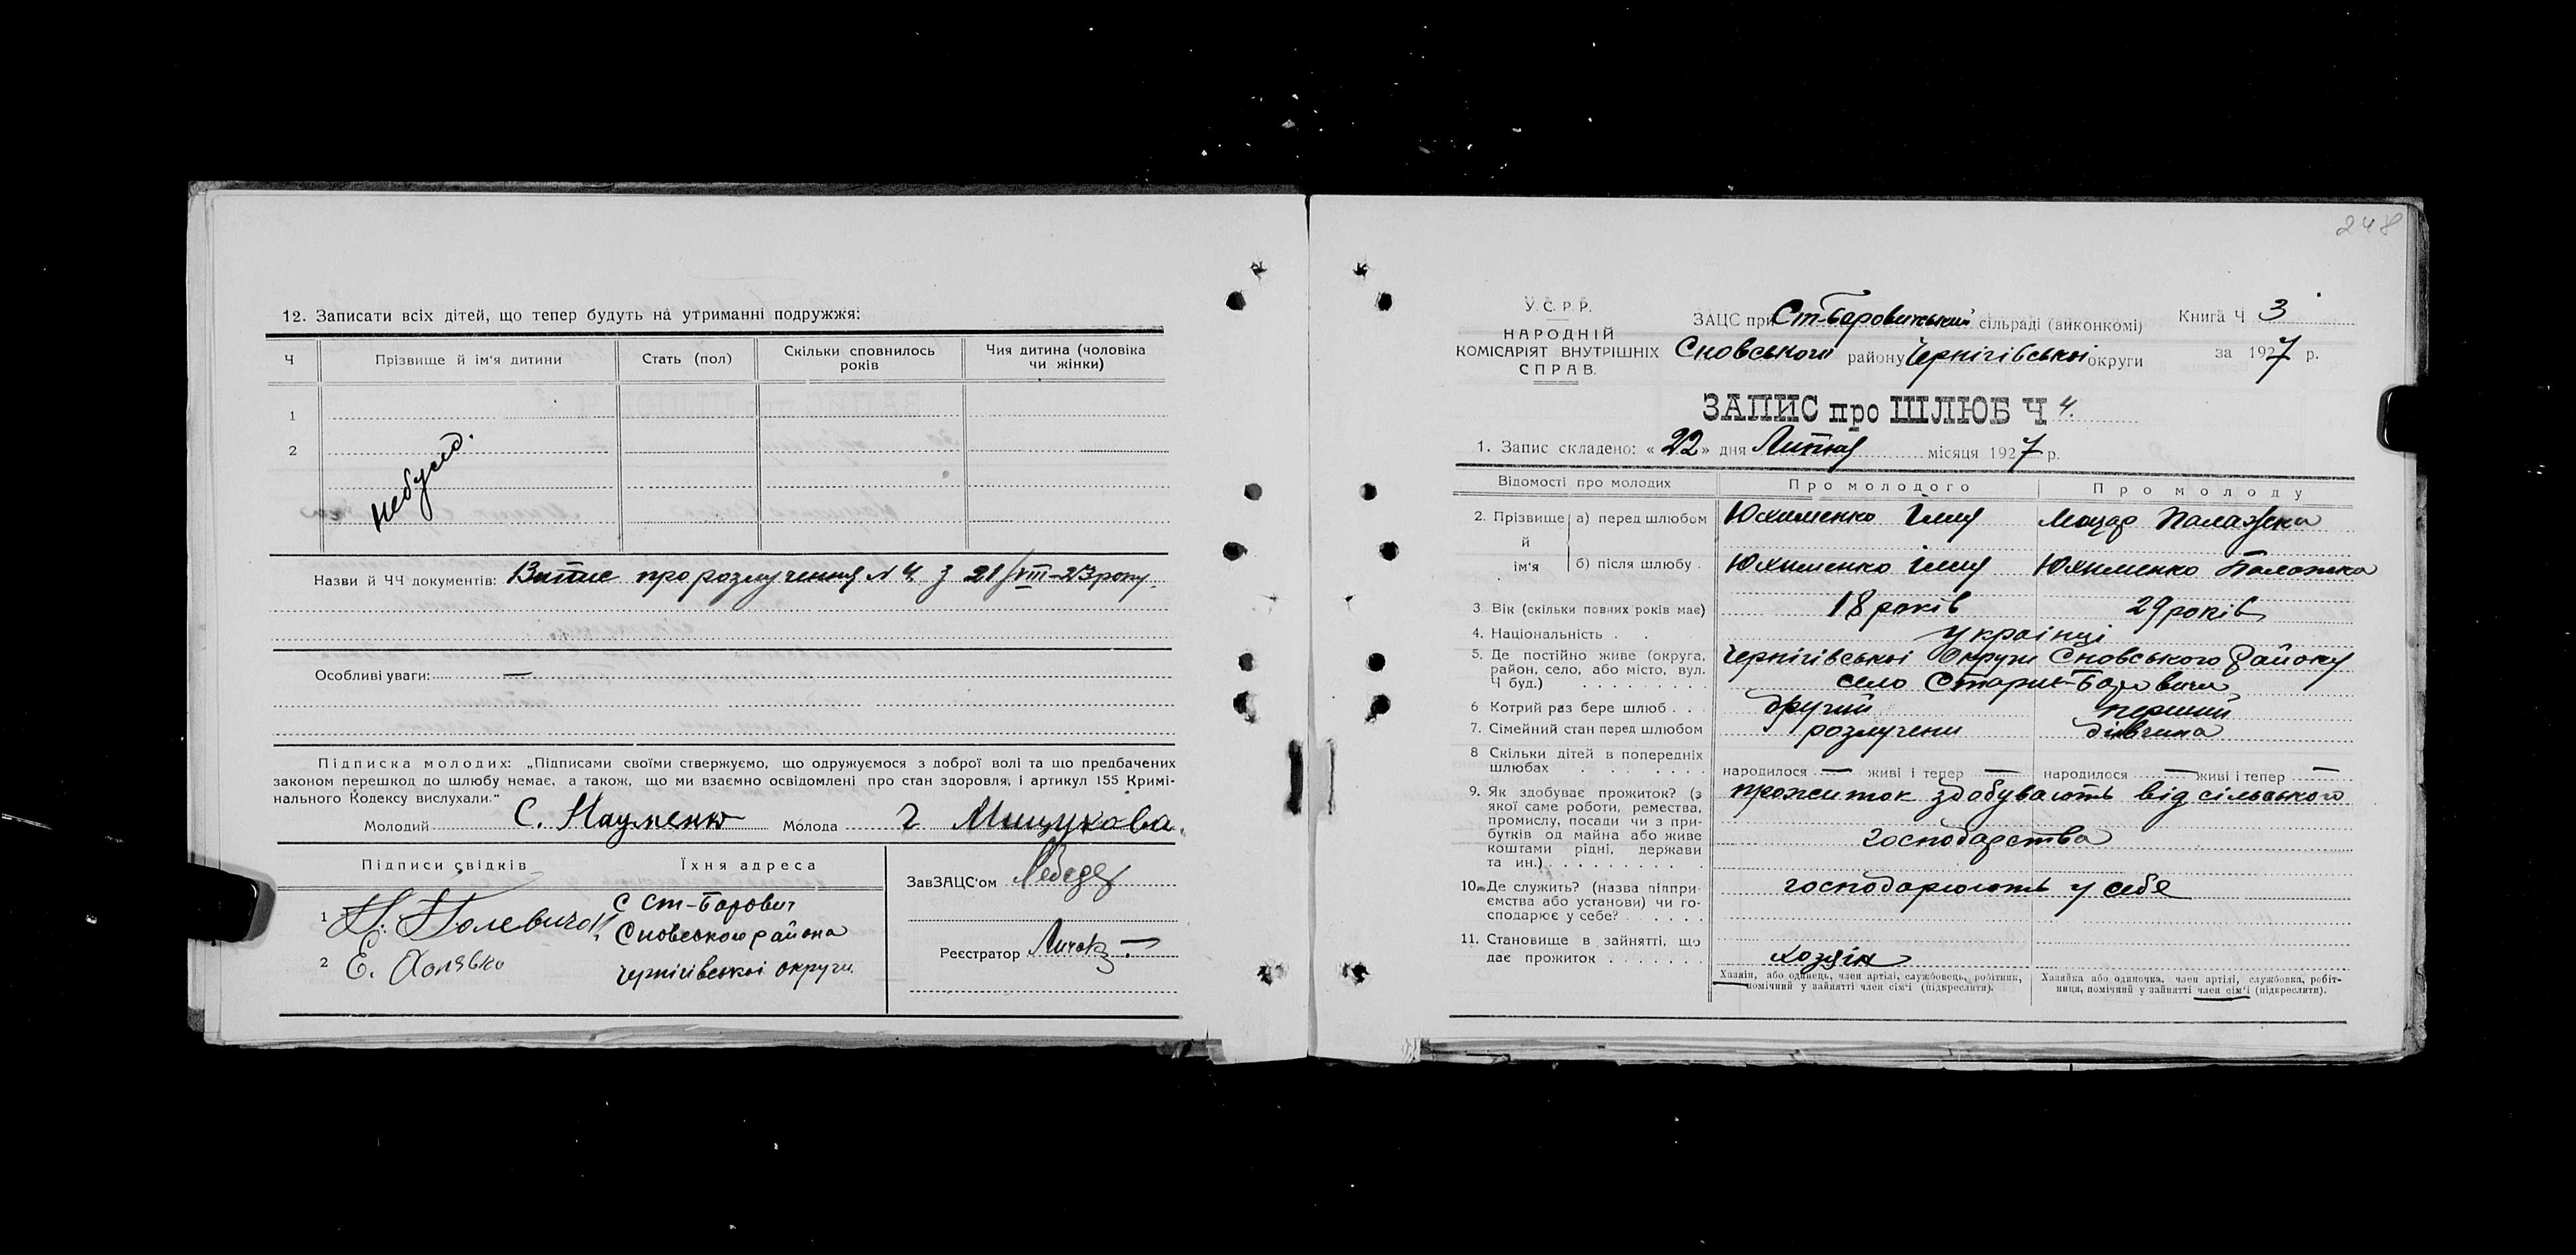 12. Записати всіх дітей, що тепер будуть на утриманні подружжя:
Ч Прізвище й ім'я дитини Стать (пол) Скільки сповнилось років Чия дитина (чоловіка чи жінки)
1
2
Назви й ЧЧ документів: Витис про розлучення N 4 з 21/VIII-23 року.
Особливі уваги: —
Підписка молодих: „Підписами своїми стверджуємо, що одружуємося з доброї волі та що предбачених
законом перешкод до шлюбу немає, а також, що ми взаємно освідомлені про стан здоровля, і артикул 155 Кримі-
нального Кодексу вислухали."
Молодий С. Науменко Молода Мищукова.
Підписи свідків Їхня адреса
ЗавЗАЦС'ом Лебедь
1 с Ст-Борович
Сновського района
2 Е. Холявко Чернігівськоі округи.
Реєстратор
248
У.С.Р.Р.
НАРОДНІЙ
КОМІСАРІЯТ ВНУТРІШНІХ
СПРАВ.
ЗАЦС при Ст-Боровицький сільраді (виконкомі)
Сновського району Чернігівськоі округи
Книга Ч 3
за 1927 р.
ЗАПИС про ШЛЮБ Ч 4.
1. Запис складено: « 22 » дня Лютня місяця 1927 р.
Відомості про молодих Про молодого Про молоду
2. Прізвище й ім'я а) перед шлюбом Юхименко Ілля Мацар Палажка
б) після шлюбу Юхименко Ілля Юхименко Палажка
3 Вік (скільки повних років має) 18 років 29 років
4. Національність українці
5. Де постійно живе (округа, район, село, або місто, вул. Ч буд.) Чернігівськоі Округи Сновського Району
село Старі-Боровичи
6 Котрий раз бере шлюб другий перший
7. Сімейний стан перед шлюбом розлучени дівчина
8 Скільки дітей в попередніх шлюбах народилося — живі і тепер — народилося — живі і тепер —
9. Як здобуває прожиток? (з якої саме роботи, ремества, промислу, посади чи з прибутків од майна або живе коштами рідні, держави та ин.) прожиток здобувають від сільського
господарства
10. Де служить? (назва підприємства або установи) чи господарює у себе? господарюють у себе
11. Становище в зайнятті, що дає прожиток хозяїн
Хазяїн, або одинець, член артілі, службовець, робітник, помічний у зайнятті член сім'ї (підкреслити).
Хазяйка або одиночка, член артілі, службовка, робітниця, помічний у зайнятті член сім'ї (підкреслити).